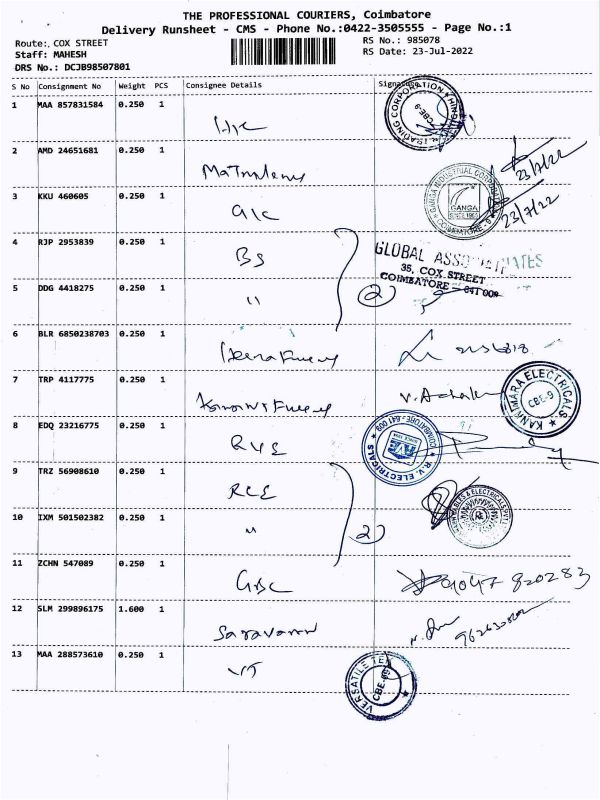 THE PROFESSIONAL COURIERS, Coimbatore
Delivery Runsheet - CMS - Phone No.:0422-3505555 - Page No.:1
Route: COX STREET RS No.: 985078
Staff: MAHESH RS Date: 23-Jul-2022
DRS No.: DCJB98507801
S No Consignment No Weight PCS Consignee Details Signature
1 MAA 857831584 0.250 1
CBE-9
2 AMD 24651681 0.250 1
23/7/22
3 KKU 460605 0.250 1 GIC
GANGA INDUSTRIAL CORPORATION
GANGA
SINCE
COIMBATORE - 9
23/7/22
4 RJP 2953839 0.250 1 BS
GLOBAL ASSOCIATES
35, COX STREET
COIMBATORE - 641 009
5 DDG 4418275 0.250 1 " 2
6 BLR 6850238703 0.250 1
7 TRP 4117775 0.250 1
KANNIMARA ELECTRICALS
CBE-9
8 EDQ 23216775 0.250 1 RVE
R.V. ELECTRICALS
COIMBATORE - 641 009
RVE
9 TRZ 56908610 0.250 1 RCE
10 IXM 501502382 0.250 1 " 2
11 ZCHN 547089 0.250 1 GBC
820283
12 SLM 299896175 1.600 1 Saravanan
13 MAA 288573610 0.250 1 VT
VERSATILE
CBE-09